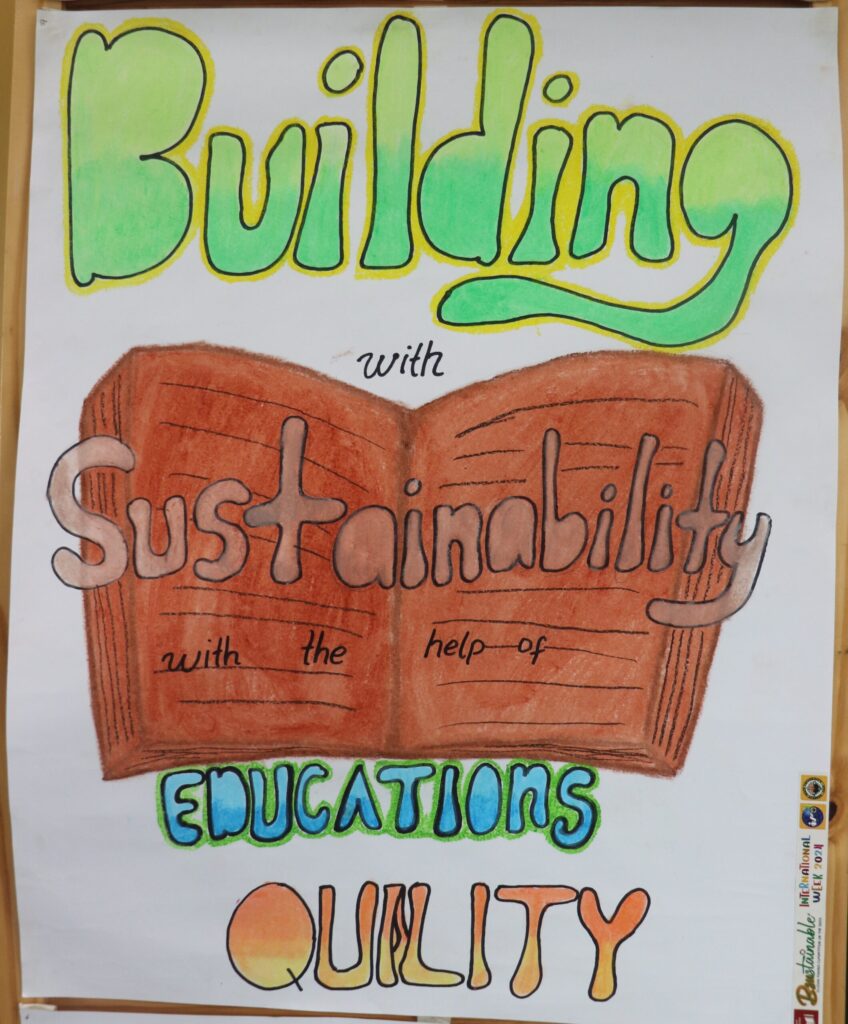 Building
with
Sustainability
with the help of
EDUCATIONS
QUALITY
INTERNATIONAL
WEEK 2024